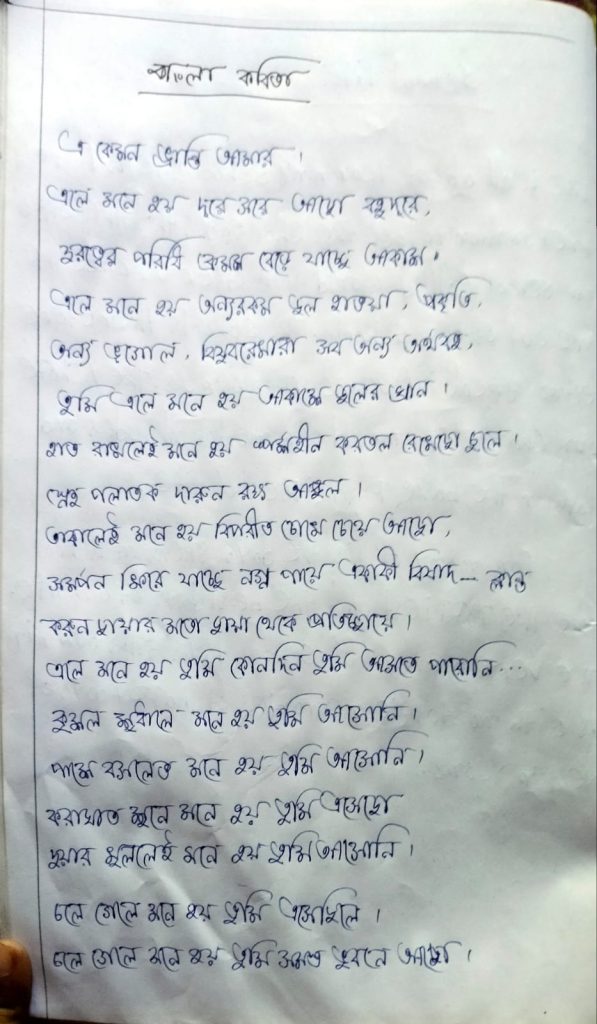 বাংলা কবিতা
এ কেমন ভ্রান্তি আমার।
এলে মনে হয় দূরে সরে আছো বহুদূরে,
দূরত্বের পরিধি ক্রমশ বেড়ে যাচ্ছে আকাশ।
এলে মনে হয় অন্যরকম জল হাওয়া, প্রকৃতি,
অন্য ভূগোল, বিষুবরেখারা সব অন্য অর্থবহ,
তুমি এলে মনে হয় আকাশে জলের ঘ্রান।
হাত রাখলেই মনে হয় স্পর্শহীন করতল রেখেছো চুলে।
স্নেহ পলাতক দারুন রুক্ষ আঙ্গুল।
তাকালেই মনে হয় বিপরীত চোখে চেয়ে আছো,
সমর্পন ফিরে যাচ্ছে নগ্ন পায়ে একাকী বিষাদ-- ক্লান্ত
করুন ছায়ার মতো ছায়া থেকে প্রতিচ্ছায়ে।
এলে মনে হয় তুমি কোনদিন তুমি আসতে পারোনি...
কুশল শুধালে মনে হয় তুমি আসোনি।
পাশে বসলেও মনে হয় তুমি আসোনি।
করাঘাত শুনে মনে হয় তুমি এসেছো
দুয়ার খুললেই মনে হয় তুমি আসোনি।
চলে গেলে মনে হয় তুমি এসেছিলে।
চলে গেলে মনে হয় তুমি সমস্ত ভুবনে আছো।